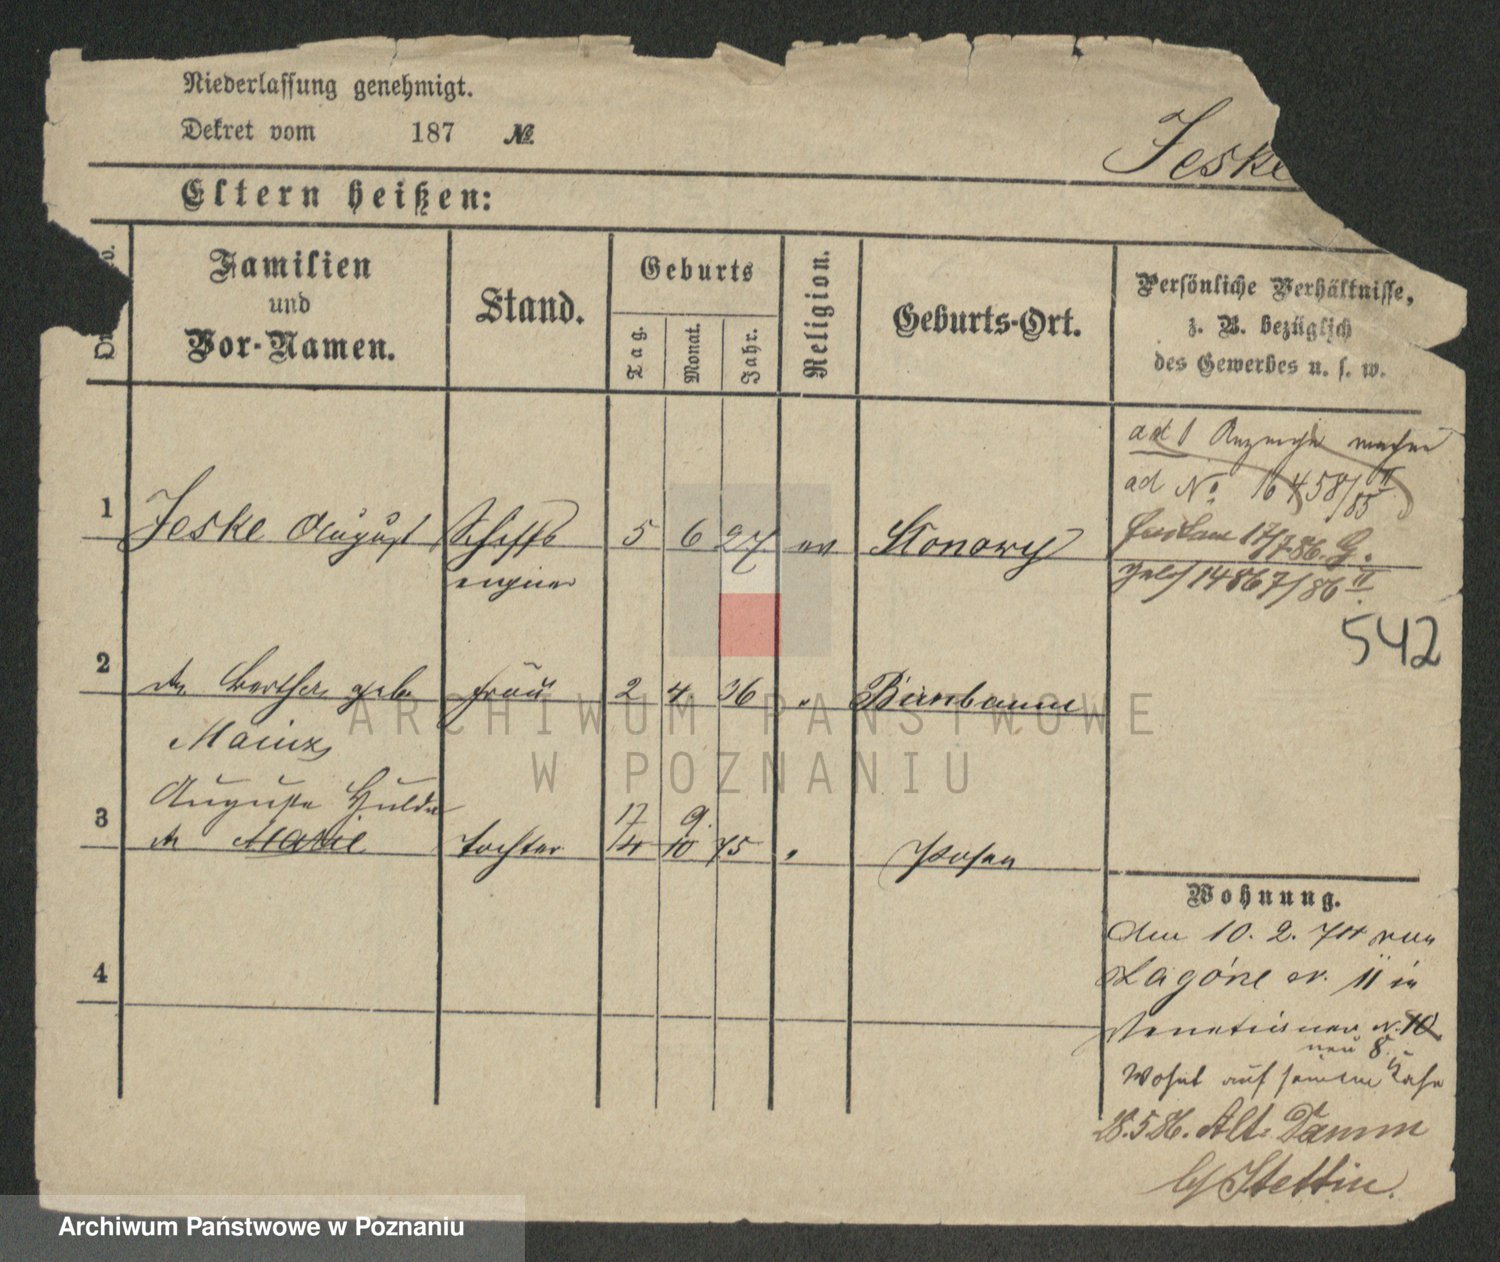 Niederlassung genehmigt.
Dekret vom 187 №
Jeske
Eltern heißen:
Familien und Vor-Namen.
Stand.
Geburts
Tag.
Monat.
Jahr.
Religion.
Geburts-Ort.
Persönliche Verhältnisse,
z. B. bezüglich
des Gewerbes u. s. w.
ad 1 Anzeige machen
ad No. 16458/85 II
17/7.86. G.
14867/86 II.
542
1 Jeske August Schiffs 5 6 27 ev Konowy
eigner
2 Bertha geb Frau 2 4 36 " Birnbaum
Mainz
Auguste Hulda 17 9.
3 Marie Tochter 14 10 75 " Posen
4
Wohnung.
Am 10. 2. 74 von
Lagóne N. 11 in
Venetianer N. 10
neu 8
Wohnt auf seinem Kahn
28.5.86. Alt-Damm
b/Stettin.
ARCHIWUM PAŃSTWOWE
W POZNANIU
Archiwum Państwowe w Poznaniu